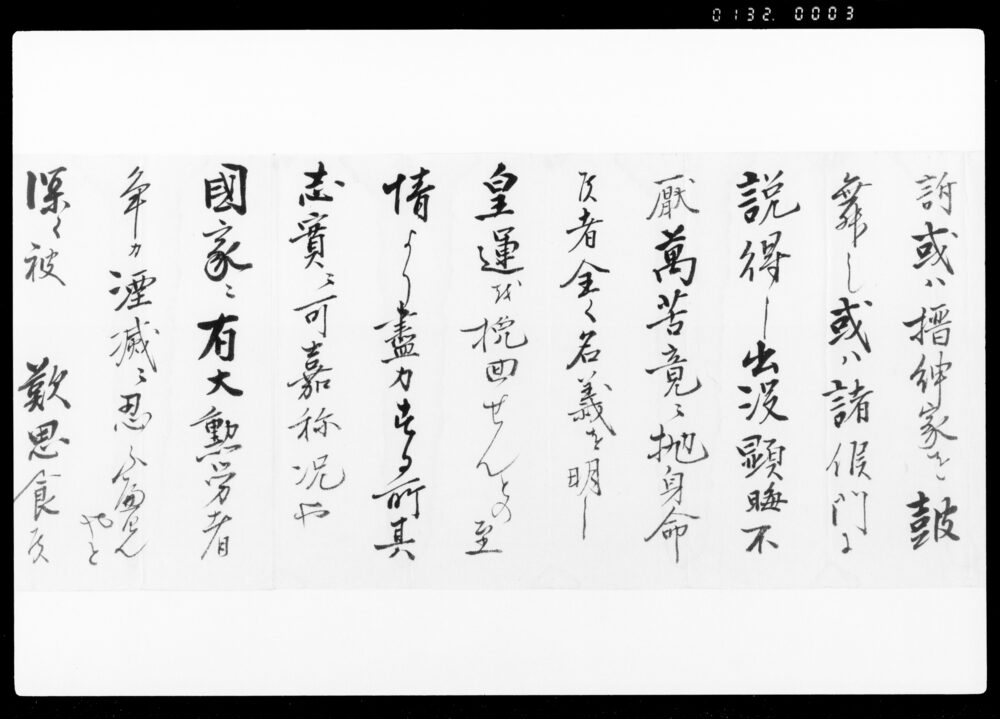 0132. 0003
訶或ハ搢紳家を鼓
舞し或ハ諸侯門に
説得し出没顕晦不
厭萬苦竟ニ抛身命
候者全く名義を明し
皇運を挽回せんとの至
情より盡力する所其
志實ニ可嘉称况や
國家ニ有大勲労者
争カ湮滅ニ忍ふ
やと
深く被 歎思食候